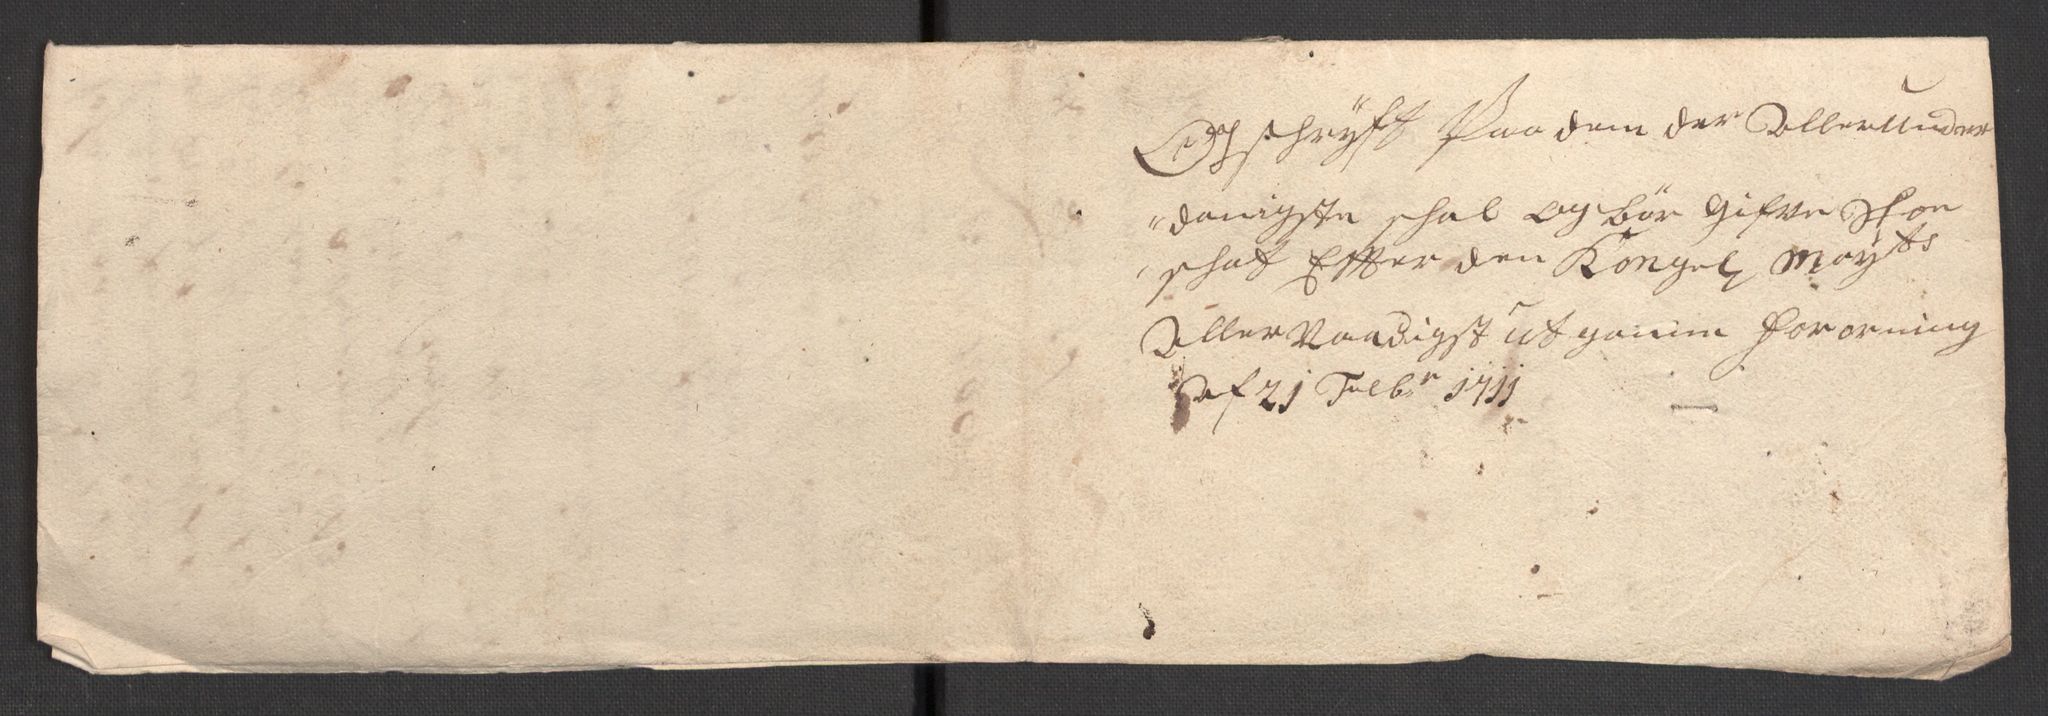 Opschryft Paa dem der Allerunder
"danigste schal og bör gifve Skoe
"schat Effter den Kongel Mayts
Allernaadigst ut ganne Fororning
Af 21 Febr 1711